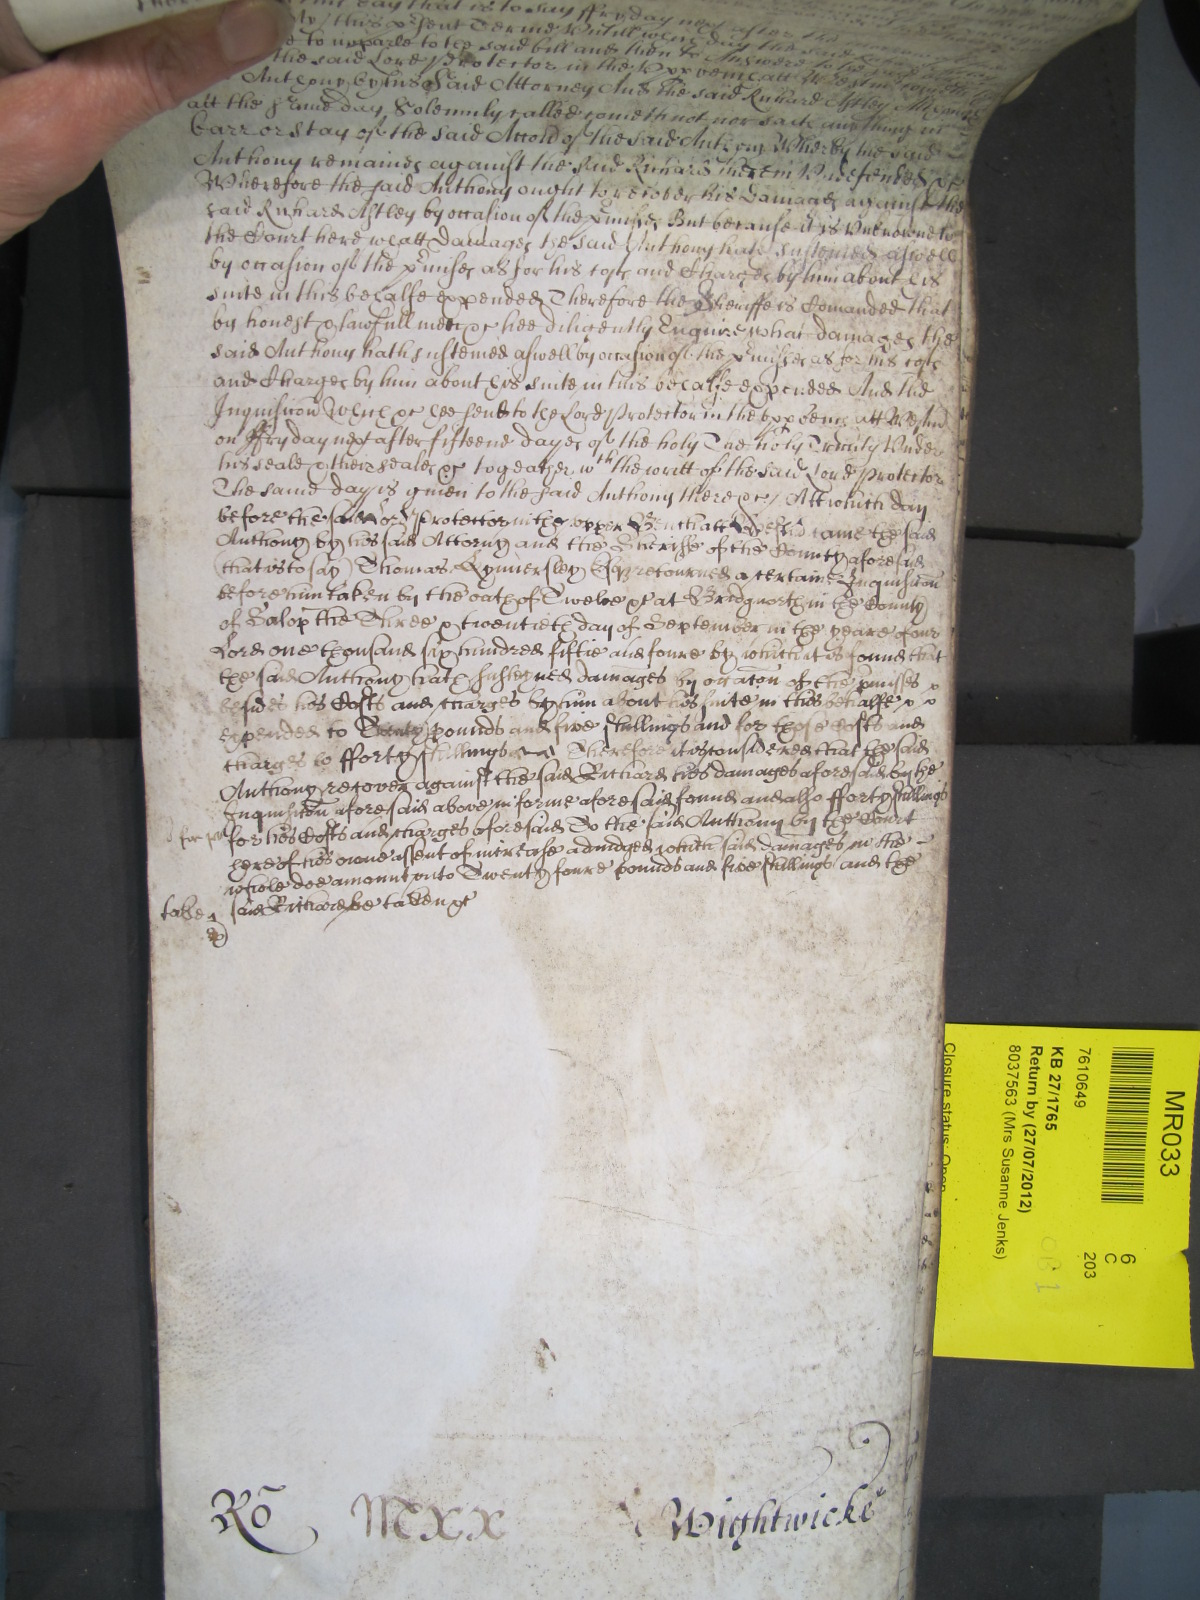 day that is to say ffryday next after the
this p'sent Terme Untill wch day the said
to imparle to the said bill and then to Answere
the said Lord Protector in the Upp bench att Westm
Anthony by his Said Attorney And the said Richard Astley
att the same day Solemnly called cometh not nor saith anything in
barr or stay of the said Accon of the said Anthony Whereby the said
Anthony remaines against the said Richard therein Undefended &c
Wherefore the said Anthony ought to recover his Damages against the
said Richard Astley by occasion of the p'misses But because it is Unknowne to
the Court here what damages the said Anthony hath susteined aswell
by occasion of the p'misses as for his costs and Charges by him about his
suite in this behalfe expended Therefore the Sheriffe is Comanded that
by honest & lawfull men &c hee diligently Enquire what damages the
said Anthony hath susteined aswell by occasion of the p'misses as for his costs
and Charges by him about his suite in this behalfe expended And the
Inquisicon Which &c hee send to the Lord Protector in the upp bench att Westm
on ffryday next after fifteene dayes of the holy The holy Trinity Under
his seale & their seales &c togeather wth the writt of the said Lord Protector
The same day is given to the said Anthony there &c / Att which day
before the said Lord Protector in the upper Bench att Westm came the said
Anthony by his said Attorny and the Sheriffe of the County aforesaid
(that is to say) Thomas Kynnersley Esq retourned a certaine Inquisicon
before him taken by the oath of Twelve &c at Bridgnorth in the County
of Salop the Three & twentieth day of September in the yeare of our
Lord one thousand six hundred fiftie and foure by which it is found that
the said Anthony hath susteyned damages by occacon of the p'misses
besides his Costs and charges by him about his suite in this behalfe
expended to Twenty pounds and five shillings and for those Costs and
charges to fforty shillings Therefore it is considered that the said
Anthony recover against the said Richard his damages aforesaid by the
Inquisicon aforesaid above in forme aforesaid found and also fforty shillings
for his Costs and charges aforesaid To the said Anthony by the Court
here of his owne assent of increase adiudged which said damages in the
whole doe amount unto Twenty foure pounds and five shillings And the
taken said Richard be taken &c
Ro MCXX Wightwicke
MR033
6
C
203
7610649
KB 27/1765
Return by (27/07/2012)
8037563 (Mrs Susanne Jenks)
Closure status: Open